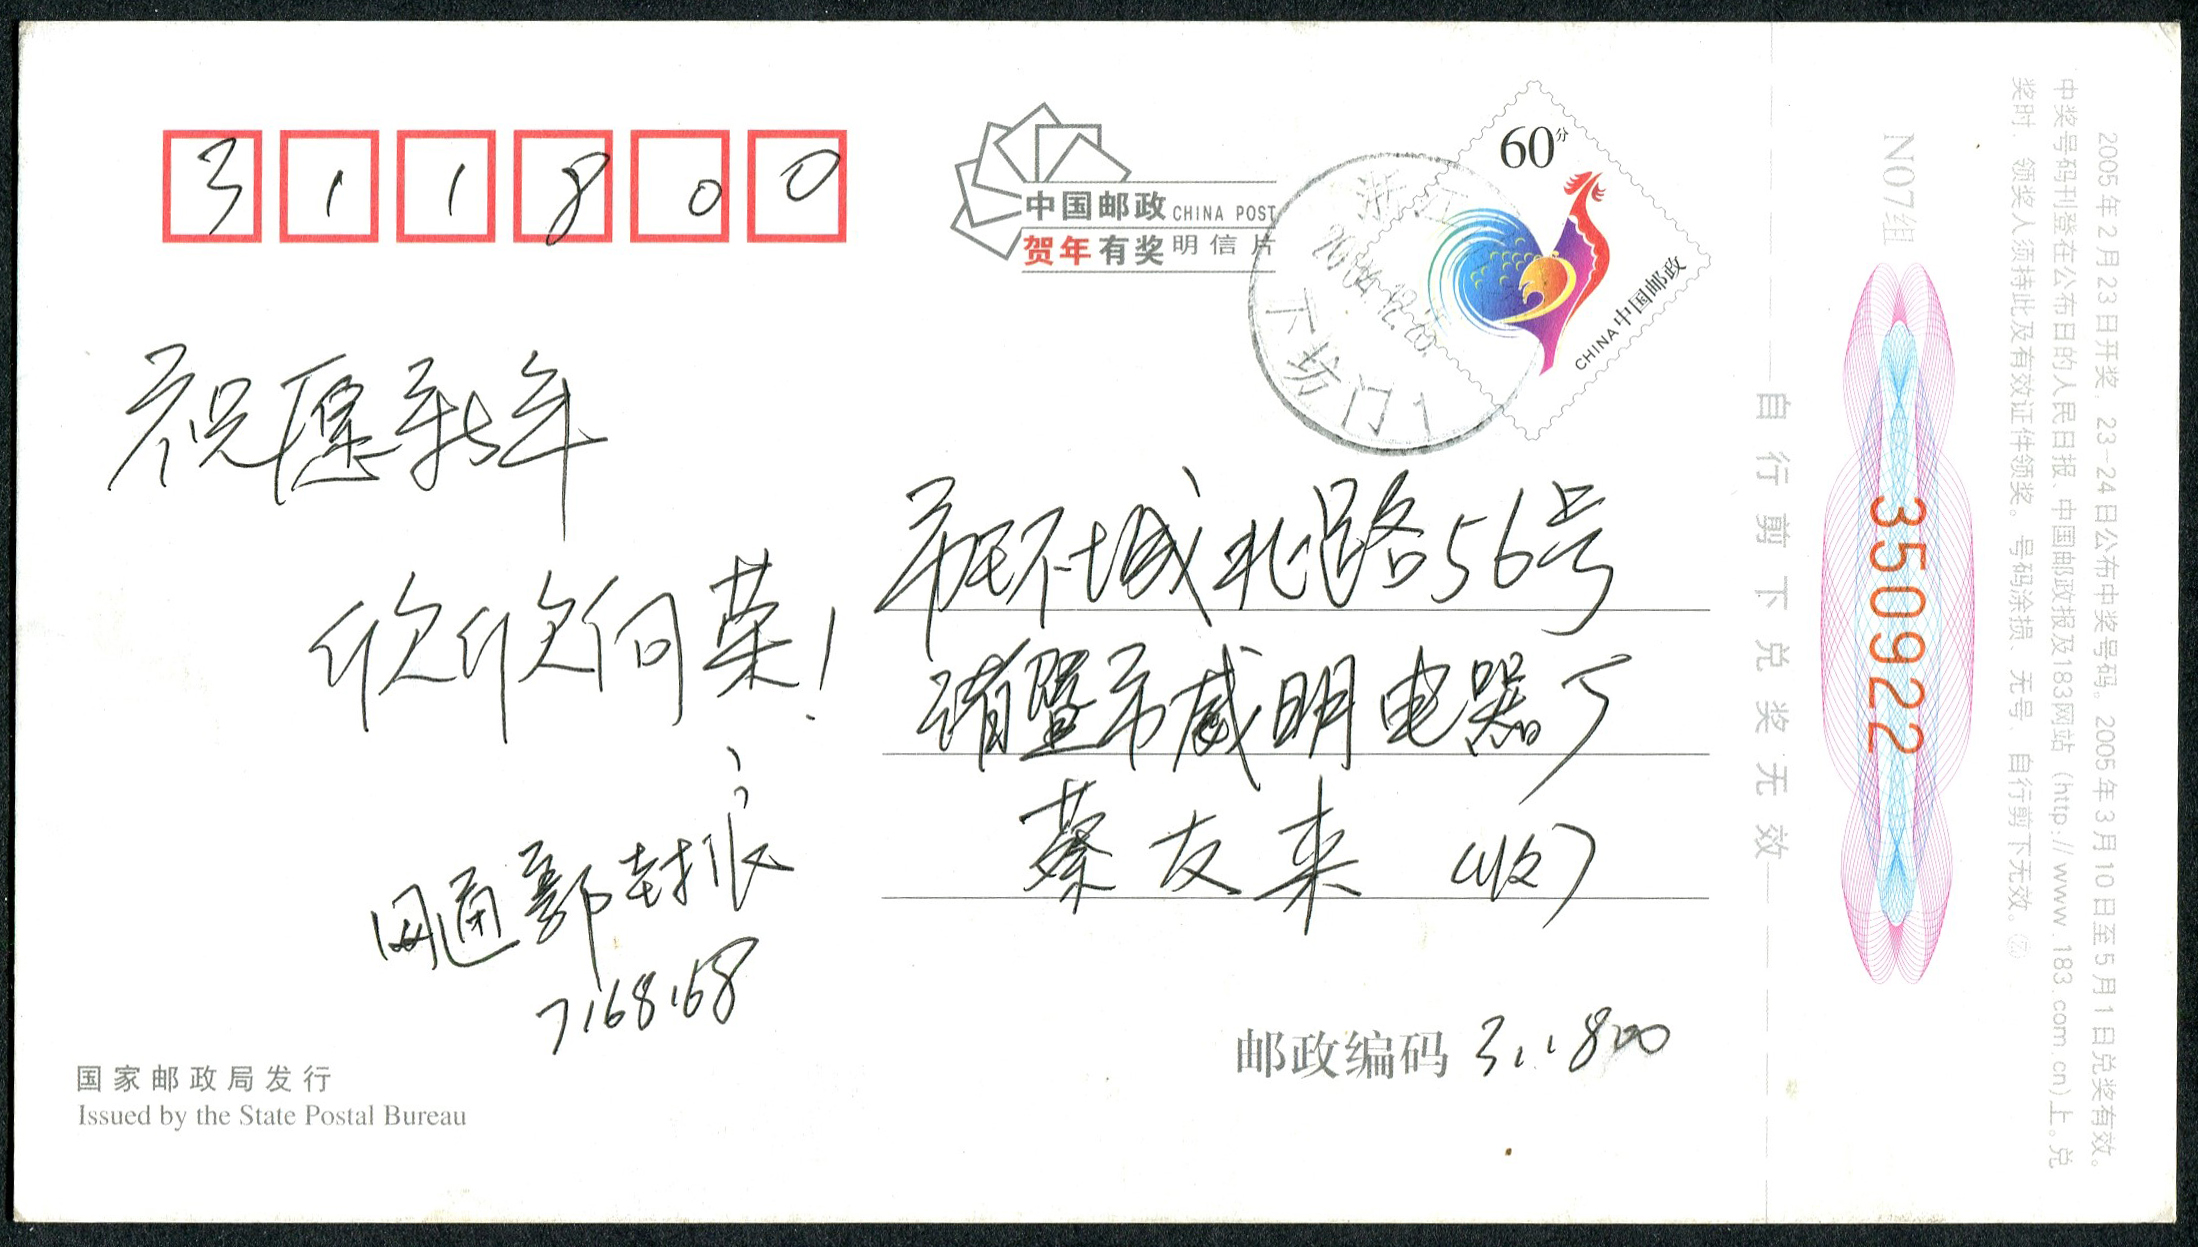 311800
中国邮政 CHINA POST
贺年有奖明信片
60分
中国邮政
CHINA
浙江
2004.12.20.
下坊门
祝愿新年
欣欣向荣!
网通郭
7168168
市环城北路56号
诸暨市威明电器厂
蔡友来(收)
邮政编码 311800
国家邮政局发行
Issued by the State Postal Bureau
自行剪下兑奖无效
N07组
350922
2005年2月23日开奖,23-24日公布中奖号码。2005年3月10日至5月1日兑奖有效。
中奖号码刊登在公布日的人民日报、中国邮政报及183网站(http://www.183.com.cn)上。兑
奖时,领奖人须持此及有效证件领奖。号码涂损、无号、自行剪下无效。